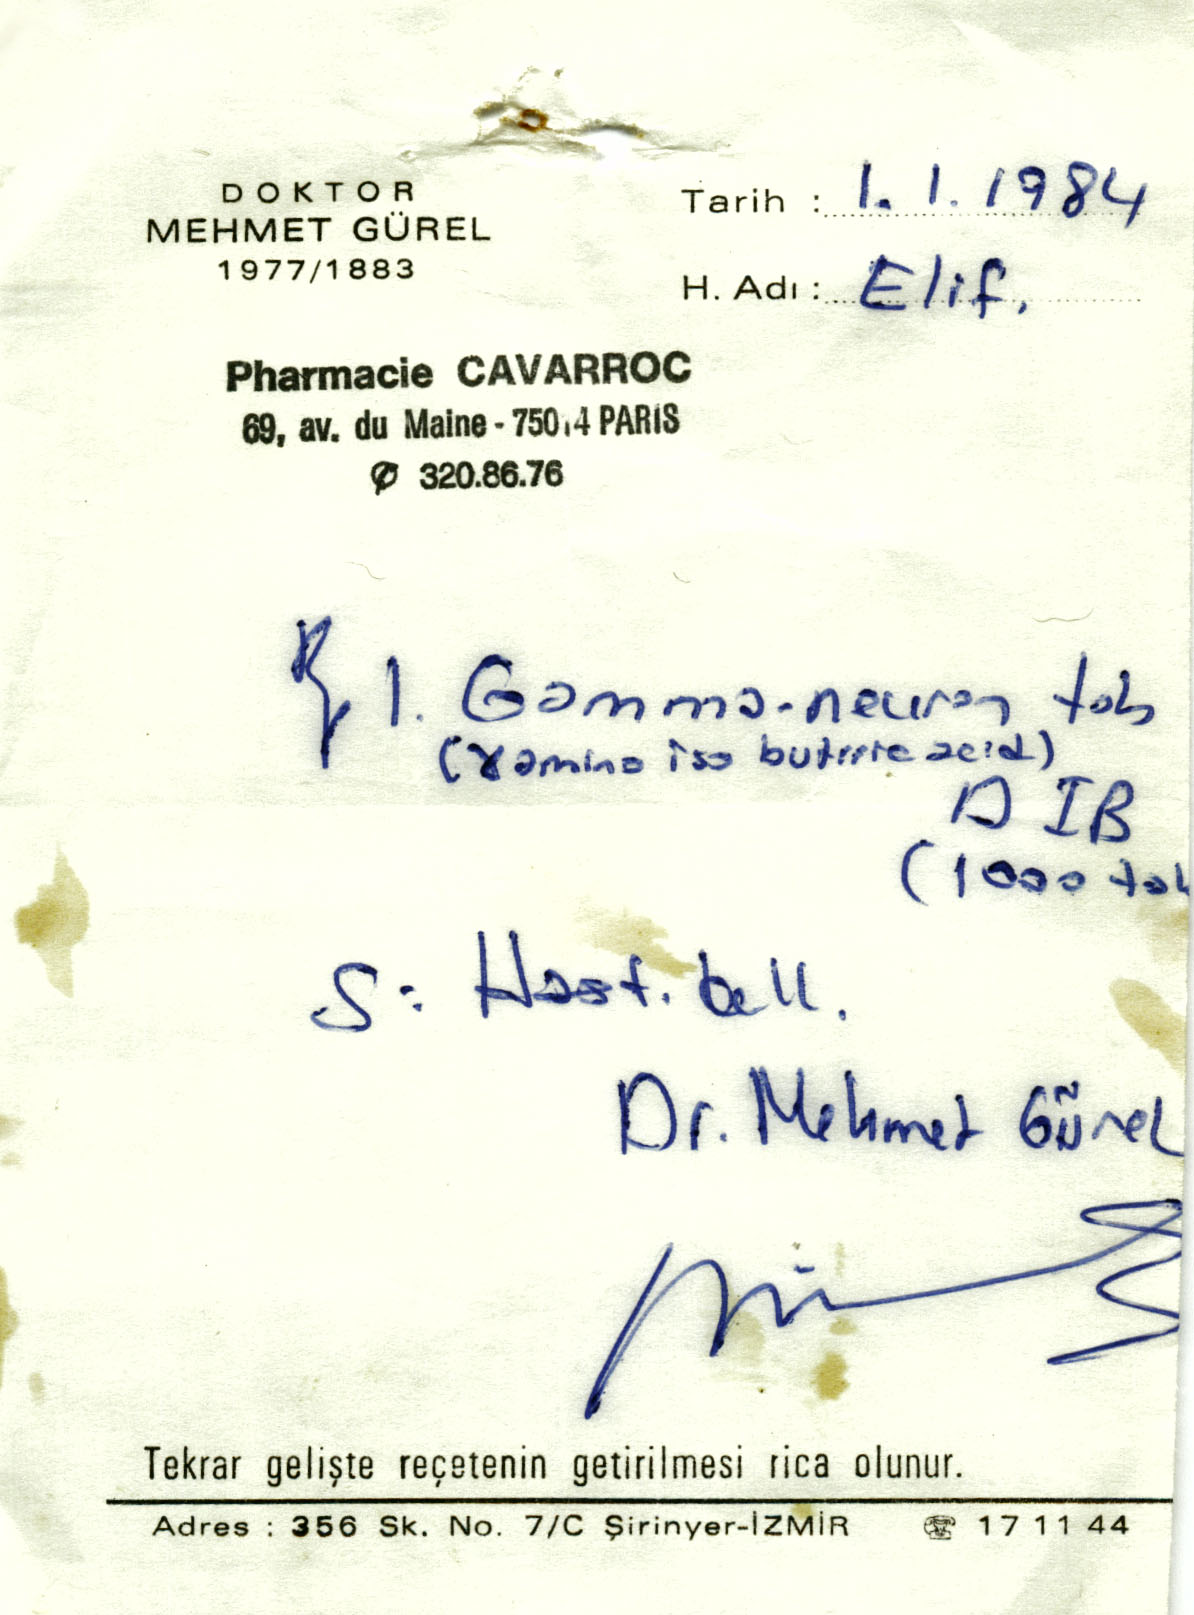 DOKTOR
MEHMET GÜREL
1977/1883
Tarih : 1.1.1984
H. Adı : Elif.
Pharmacie CAVARROC
69, av. du Maine - 75014 PARIS
320.86.76
1. Gamma-neuron tab
(γ amino iso butiric acid)
A IB
(1000 tab
S: Hast. bell.
Dr. Mehmet Gürel
Tekrar gelişte reçetenin getirilmesi rica olunur.
Adres : 356 Sk. No. 7/C Şirinyer-İZMİR ☎ 17 11 44